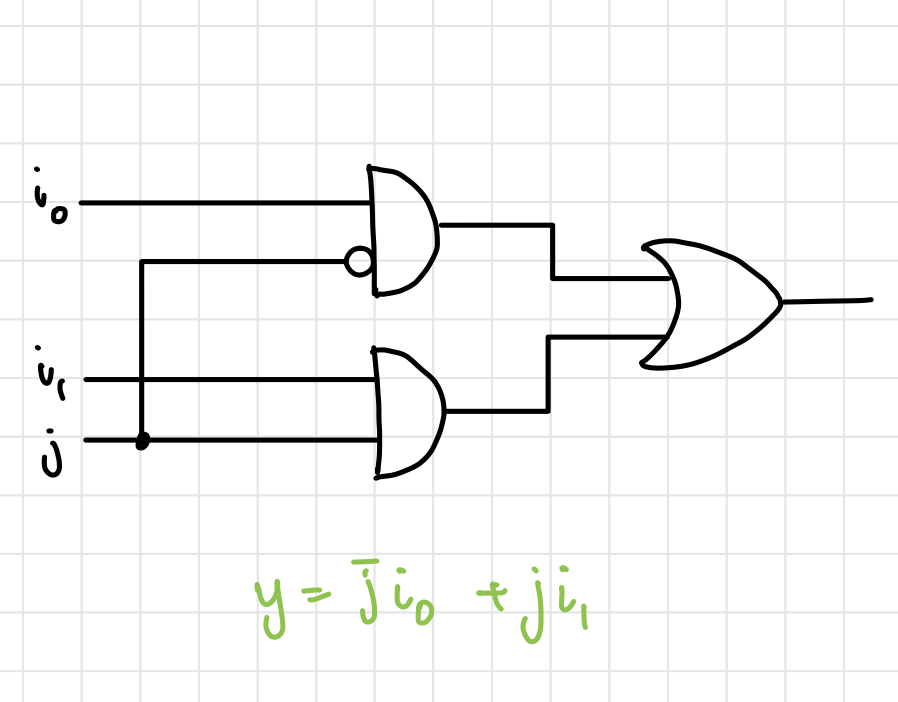 i₀
i₁
j
y = j̅ i₀ + j i₁